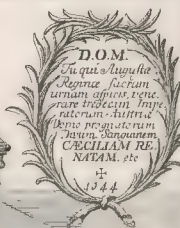 D.O.M.
Tu qui Augustæ
Reginæ sacrum
urnam aspicis, vene,
rare tredecim Impe
ratorum Austriæ
Domo prognatorum
Divum Sanguinem
CÆCILIAM RE
NATAM. etc
1644